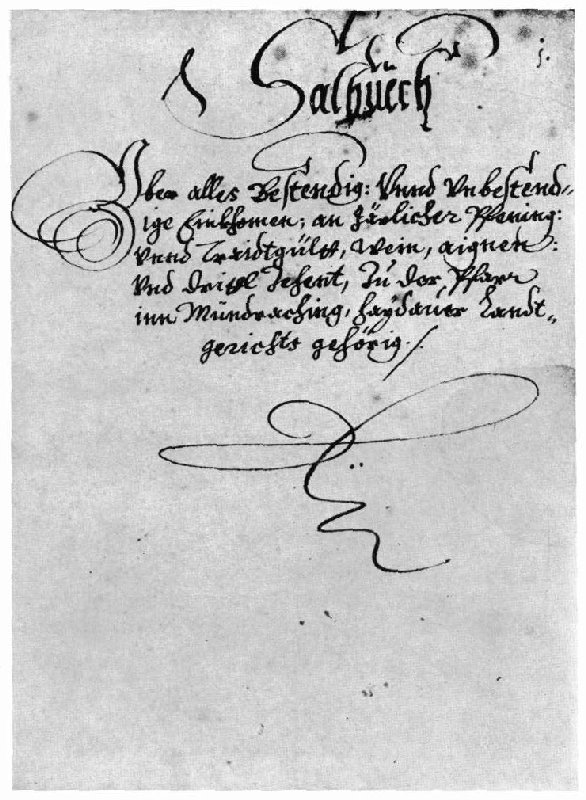 1.
Salbuech
Über alles Bestendig: Unnd Vnbestend„
ige Einkhomen; an Järlicher Pfening:
vnnd Traidtgült, Wein, aignen:
Vnd drittl Zehent, Zu der Pfarr
inn Mündraching, haydauer Landt„
gerichts gehörig ./.